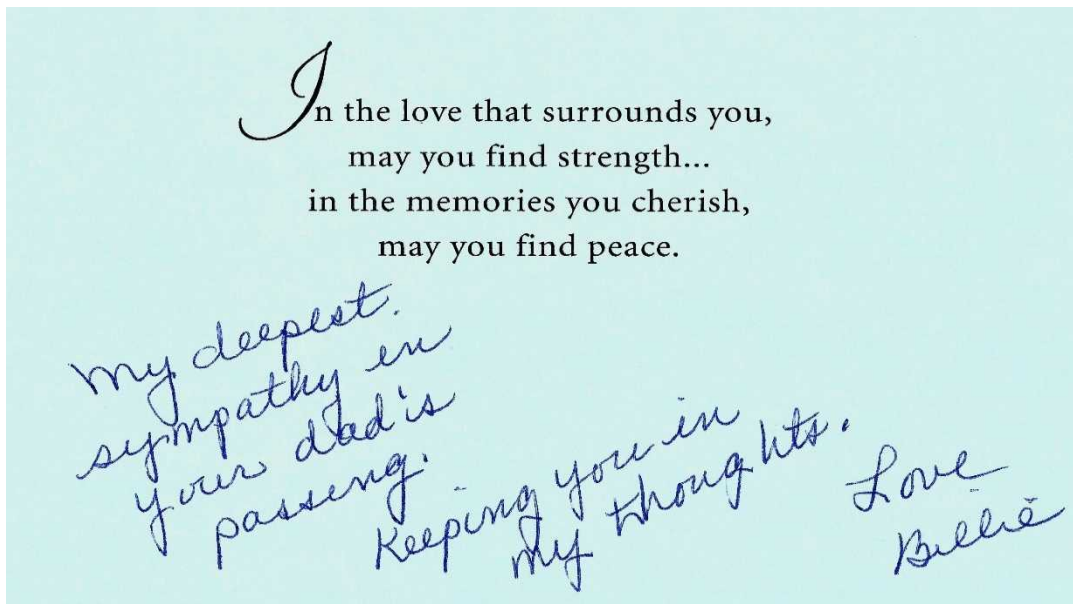 In the love that surrounds you,
may you find strength...
in the memories you cherish,
may you find peace.
My deepest.
sympathy in
your dad's
passing.
Keeping you in
my thoughts.
Love
Billie